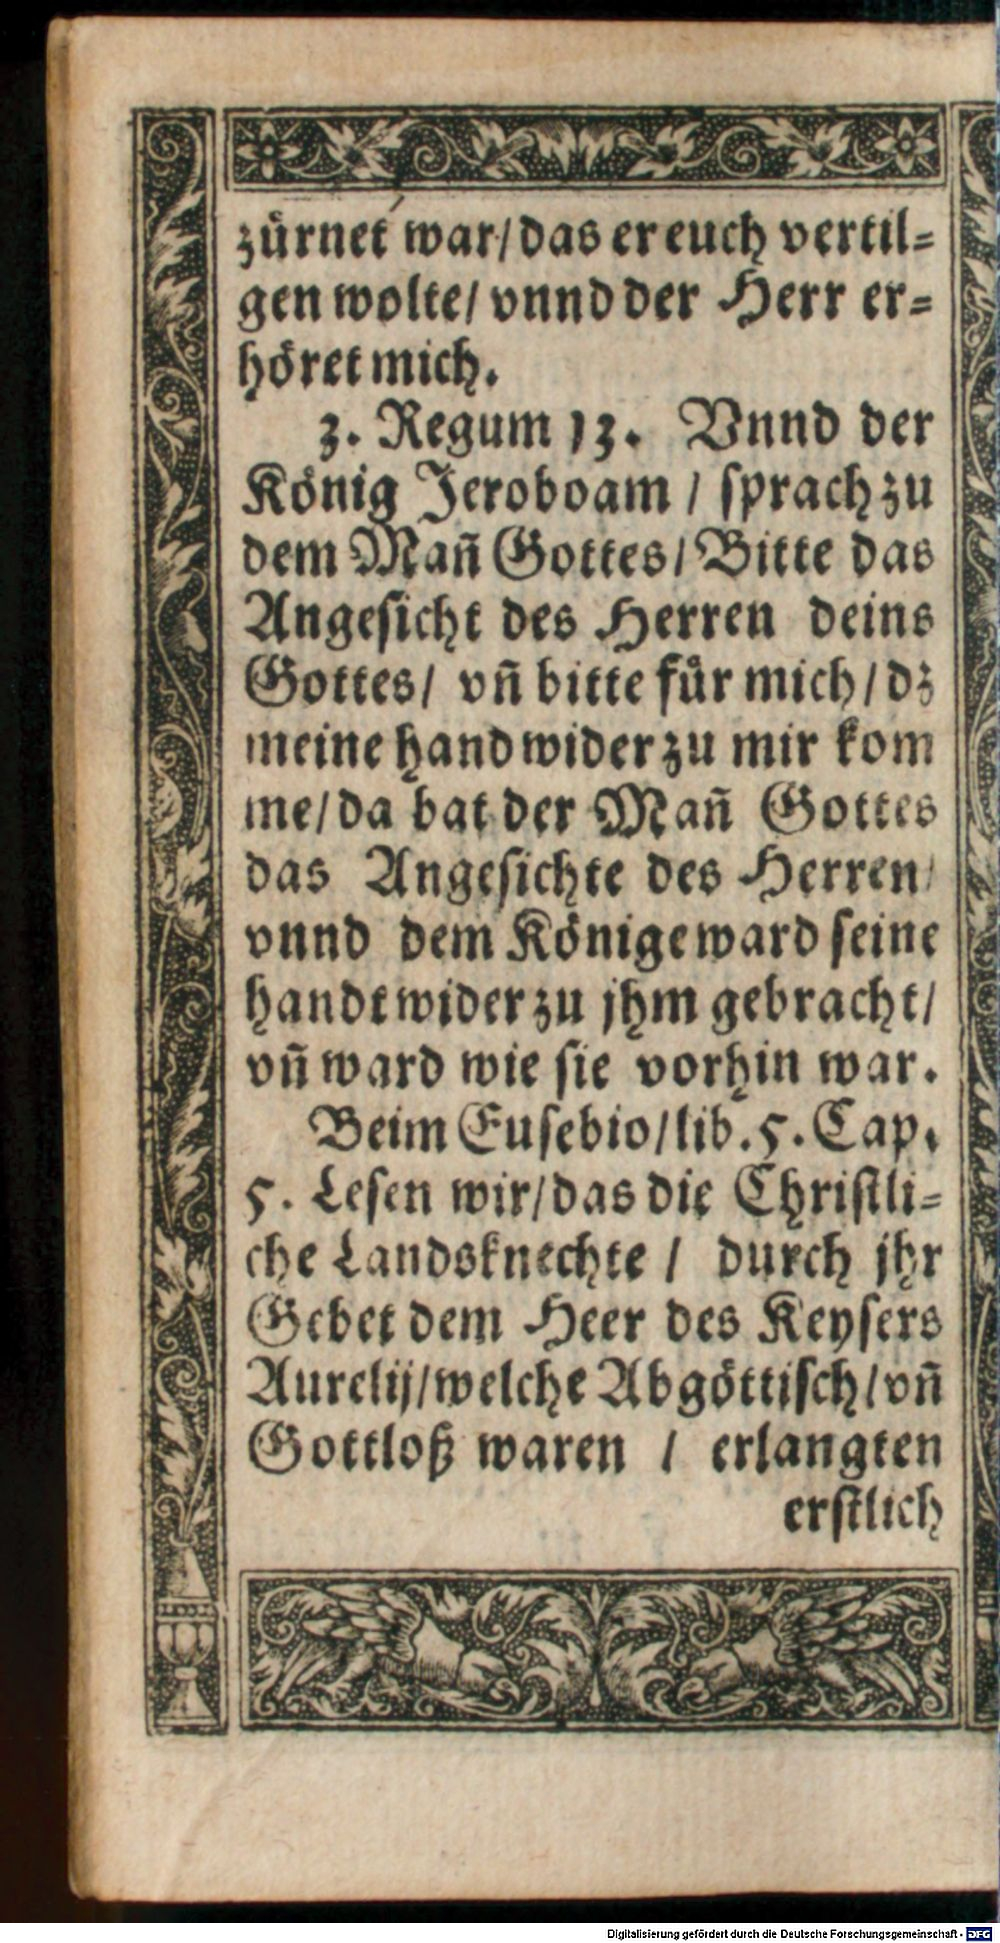 zürnet war/das er euch vertil=
gen wolte/ vnnd der Herr er=
höret mich.
3. Regum 13. Vnnd der
König Jeroboam / sprach zu
dem Mañ Gottes/ Bitte das
Angesicht des Herren deins
Gottes/ vñ bitte für mich/ dz
meine hand wider zu mir kom
me/da bat der Mañ Gottes
das Angesichte des Herren/
vnnd dem Könige ward seine
handt wider zu jhm gebracht/
vñ ward wie sie vorhin war.
Beim Eusebio/lib. 5. Cap.
5. Lesen wir/das die Christli=
che Landsknechte / durch jhr
Gebet dem Heer des Keysers
Aurelij/welche Abgöttisch/vñ
Gottloß waren / erlangten
erstlich
Digitalisierung gefördert durch die Deutsche Forschungsgemeinschaft - DFG